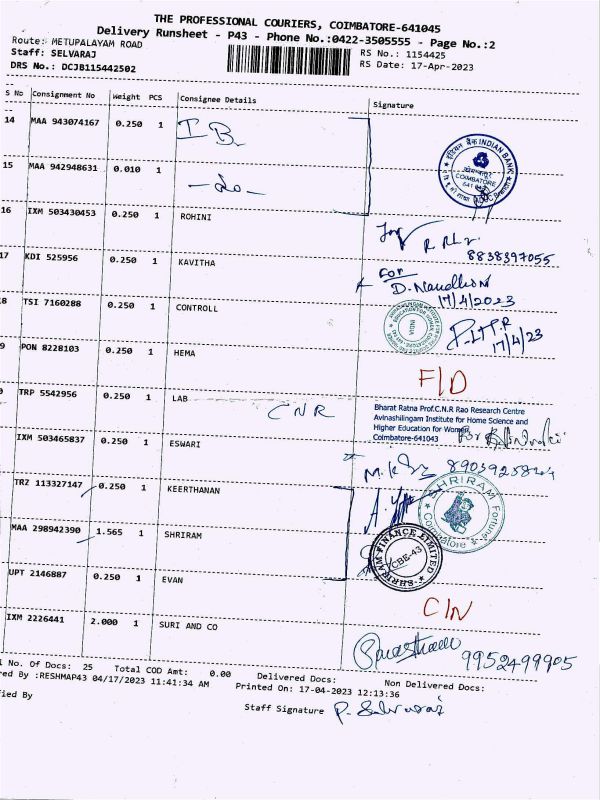 THE PROFESSIONAL COURIERS, COIMBATORE-641045
Delivery Runsheet - P43 - Phone No.:0422-3505555 - Page No.:2
Route: METUPALAYAM ROAD
Staff: SELVARAJ
DRS No.: DCJB115442502
RS No.: 1154425
RS Date: 17-Apr-2023
S No Consignment No Weight PCS Consignee Details Signature
14 MAA 943074167 0.250 1 I B
INDIAN BANK
COIMBATORE
15 MAA 942948631 0.010 1 -do-
16 IXM 503430453 0.250 1 ROHINI
8838397055
17 KDI 525956 0.250 1 KAVITHA
For
D. Nandhini
17/4/2023
8 TSI 7160288 0.250 1 CONTROLL
INDIA
17/4/23
9 PON 8228103 0.250 1 HEMA F/D
0 TRP 5542956 0.250 1 LAB CNR
Bharat Ratna Prof.C.N.R Rao Research Centre
Avinashilingam Institute for Home Science and
Higher Education for Women
Coimbatore-641043
IXM 503465837 0.250 1 ESWARI
TRZ 113327147 0.250 1 KEERTHANAN
SHRIRAM Fortune
Coimbatore
MAA 298942390 1.565 1 SHRIRAM
SHRIRAM FINANCE LIMITED
CBE-43
UPT 2146887 0.250 1 EVAN C/N
IXM 2226441 2.000 1 SURI AND CO
9952499905
l No. Of Docs: 25 Total COD Amt: 0.00 Delivered Docs: Non Delivered Docs:
red By :RESHMAP43 04/17/2023 11:41:34 AM Printed On: 17-04-2023 12:13:36
fied By
Staff Signature P. Selvaraj